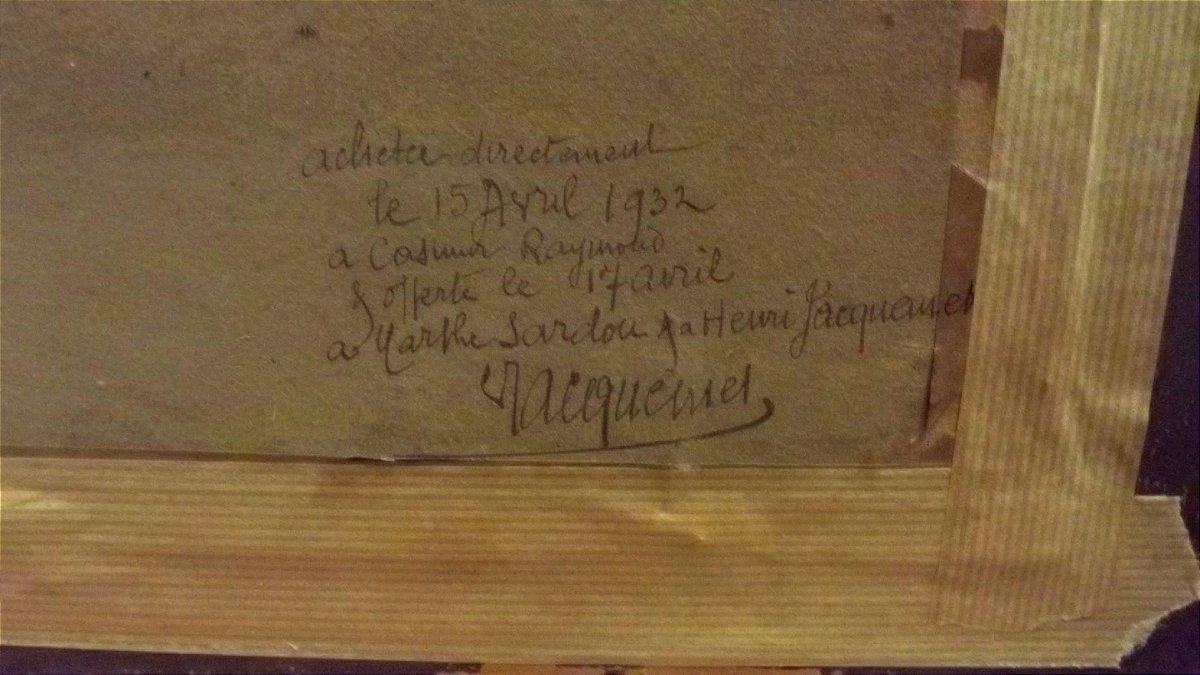 acheter directement
le 15 Avril 1932
a Casimir Raymond
& offerte le 17 avril
a Marthe Sardou & a Henri Jacquemet
Jacquemet